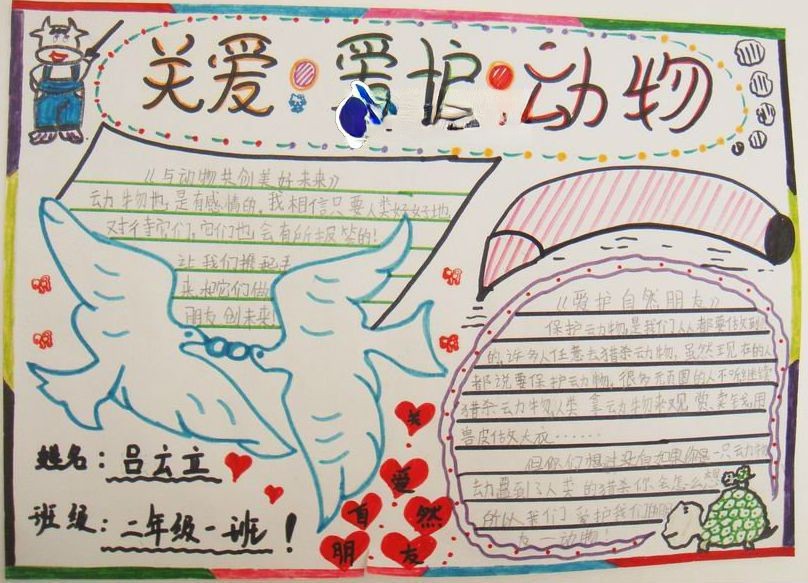 关爱·爱护·动物
《与动物共创美好未来》
动物也是有感情的,我相信只要人类好好地
对待它们,它们也会有所报答的!
让我们携起手
来,把它们做
朋友创未来
姓名:吕云立
班级:二年级一班!
《爱护自然朋友》
保护动物,是我们人人都要做到
的,许多人任意去猎杀动物,虽然现在的人
都说要保护动物,很多无良的人不断继续
猎杀动物,人类拿动物来观赏、卖钱,用
兽皮做大衣……
但你们想过没有如果你是一只动物
动遇到了人类的猎杀你会怎么想
所以我们爱护我们的朋
友—动物!
关
爱
自 然
朋 友